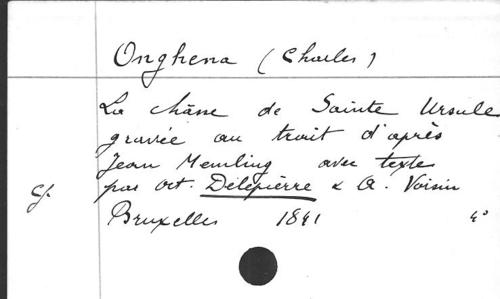 Onghena (Charles)
La châsse de Sainte Ursule
gravée au trait d'après
Jean Memling avec texte
par Oct. Delepierre & A. Voisin
Cf.
Bruxelles 1841 4°